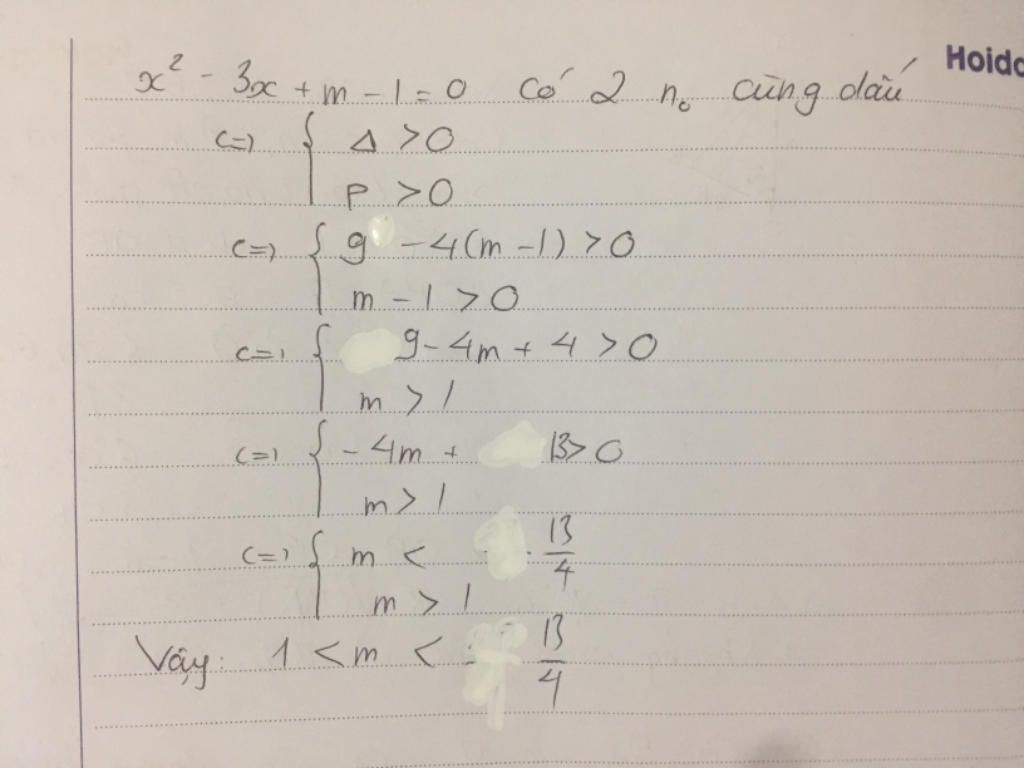 Hoidc
x² - 3x + m - 1 = 0 có 2 n₀ cùng dấu
<=> { Δ > 0
P > 0
<=> { 9 - 4(m - 1) > 0
m - 1 > 0
<=> { 9 - 4m + 4 > 0
m > 1
<=> { - 4m + 13 > 0
m > 1
<=> { m < 13/4
m > 1
Vậy: 1 < m < 13/4